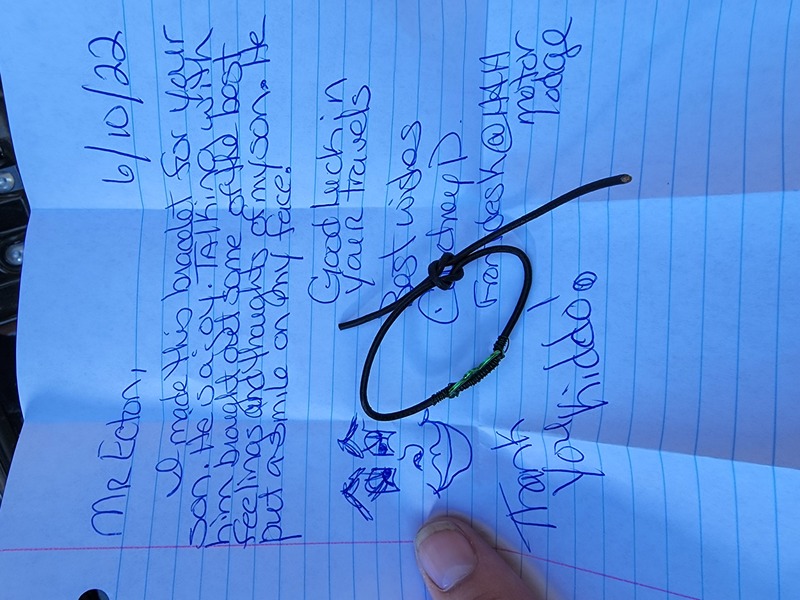 6/10/22
Mr Ecton,
I made this bracelet for your
son. He is a joy. Talking with
him brought out some of the best
feelings and thoughts of my son. He
put a smile on my face!
Good luck in
your travels
Best wishes
P.
Front desk @
motor
lodge
Thank
you kiddo